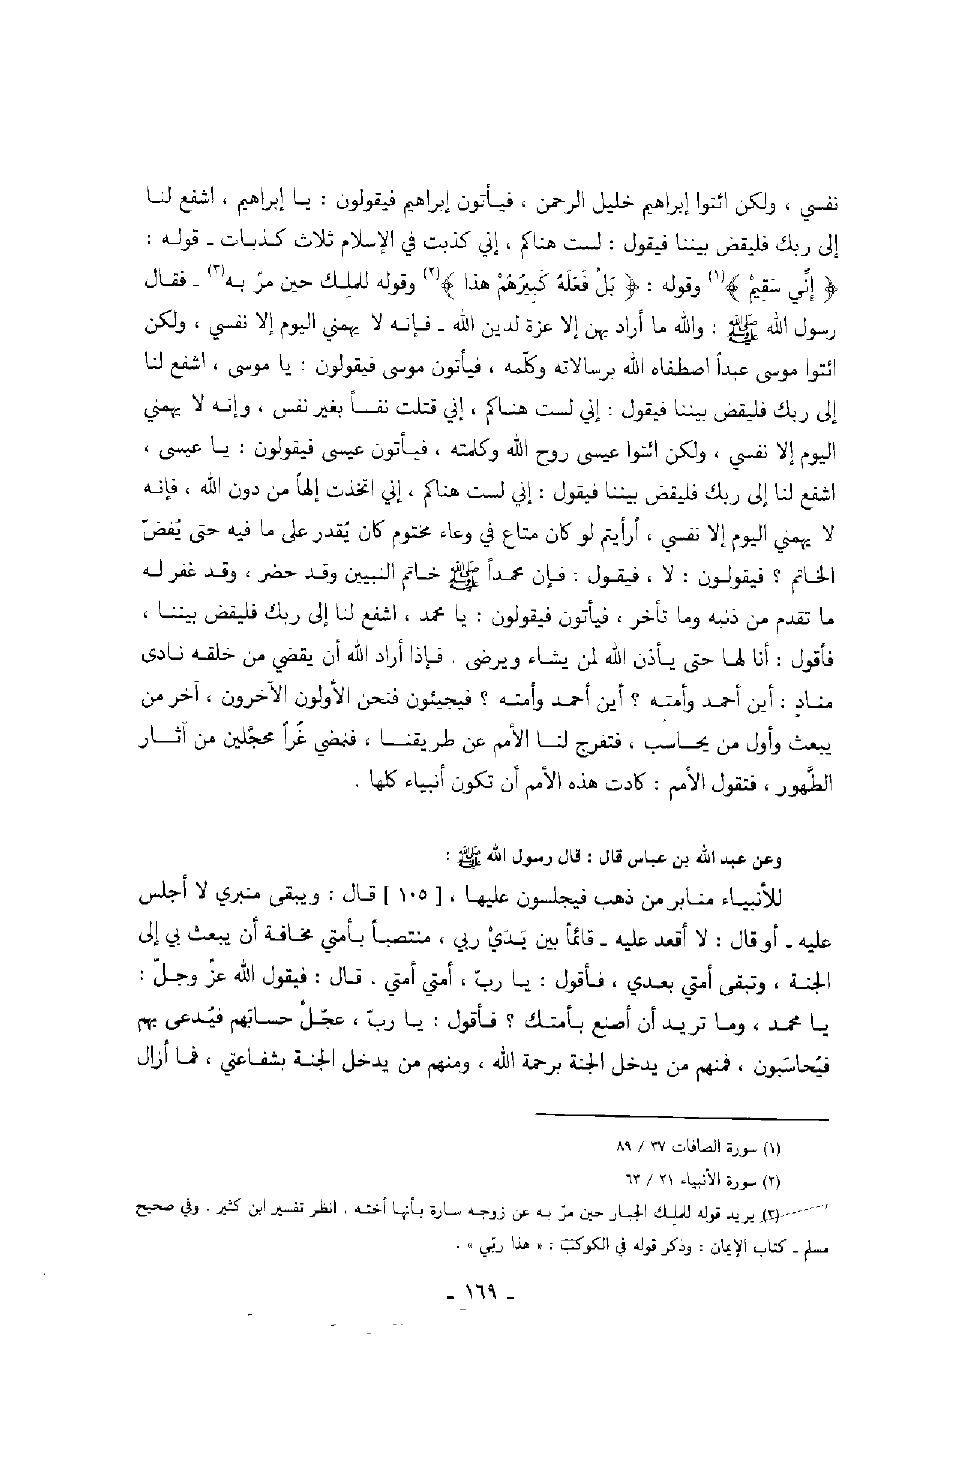 نفسي ، ولكن ائتوا إبراهيم خليل الرحمن ، فيأتون إبراهيم فيقولون : يا إبراهيم ، اشفع لنا
إلى ربك فليقض بيننا فيقول : لست هناكم ، إني كذبت في الإسلام ثلاث كذبات ـ قوله :
﴿ إنِّي سَقِيمٌ ﴾(١) وقوله : ﴿ بَلْ فَعَلَهُ كَبِيرُهُمْ هذا ﴾(٢) وقوله للملك حين مرّ به(٣) ـ فقال
رسول الله ﷺ : والله ما أراد بهن إلا عزة لدين الله ـ فإنه لا يهمني اليوم إلا نفسي ، ولكن
ائتوا موسى عبداً اصطفاه الله برسالاته وكلّمه ، فيأتون موسى فيقولون : يا موسى ، اشفع لنا
إلى ربك فليقض بيننا فيقول : إني لست هناكم ، إني قتلت نفساً بغير نفس ، وإنه لا يهمني
اليوم إلا نفسي ، ولكن ائتوا عيسى روح الله وكلمته ، فيأتون عيسى فيقولون : يا عيسى ،
اشفع لنا إلى ربك فليقض بيننا فيقول : إني لست هناكم ، إني اتخذت إلهاً من دون الله ، فإنه
لا يهمني اليوم إلا نفسي ، أرأيتم لو كان متاع في وعاء مختوم كان يُقدر على ما فيه حتى يُفضّ
الخاتم ؟ فيقولون : لا ، فيقول : فإن محمداً ﷺ خاتم النبيين وقد حضر ، وقد غفر له
ما تقدم من ذنبه وما تأخر ، فيأتون فيقولون : يا محمد ، اشفع لنا إلى ربك فليقض بيننا ،
فأقول : أنا لها حتى يأذن الله لمن يشاء ويرضى . فإذا أراد الله أن يقضي من خلقه نادى
منادٍ : أين أحمد وأمته ؟ أين أحمد وأمته ؟ فيجيئون فنحن الأولون الآخرون ، آخر من
يبعث وأول من يحاسب ، فتفرج لنا الأمم عن طريقنا ، فنمضي غراً محجّلين من آثار
الطَّهور ، فتقول الأمم : كادت هذه الأمم أن تكون أنبياء كلها .
وعن عبد الله بن عباس قال : قال رسول الله ﷺ :
للأنبياء منابر من ذهب فيجلسون عليها ، [ ١٠٥ ] قال : ويبقى منبري لا أجلس
عليه ـ أو قال : لا أقعد عليه ـ قائماً بين يَدَيْ ربي ، منتصباً بأمتي مخافة أن يبعث بي إلى
الجنة ، وتبقى أمتي بعدي ، فأقول : يا ربّ ، أمتي أمتي . قال : فيقول الله عزّ وجلّ :
يا محمد ، وما تريد أن أصنع بأمتك ؟ فأقول : يا ربّ ، عجّلْ حسابهم فيُدعى بهم
فيُحاسَبون ، فمنهم من يدخل الجنة برحمة الله ، ومنهم من يدخل الجنة بشفاعتي ، فما أزال
(١) سورة الصافات ٣٧ / ٨٩
(٢) سورة الأنبياء ٢١ / ٦٣
(٣) يريد قوله للملك الجبار حين مرّ به عن زوجه سارة بأنها أخته . انظر تفسير ابن كثير . وفي صحيح
مسلم ـ كتاب الإيمان : وذكر قوله في الكوكب : « هذا ربّي » .
ـ ١٦٩ ـ